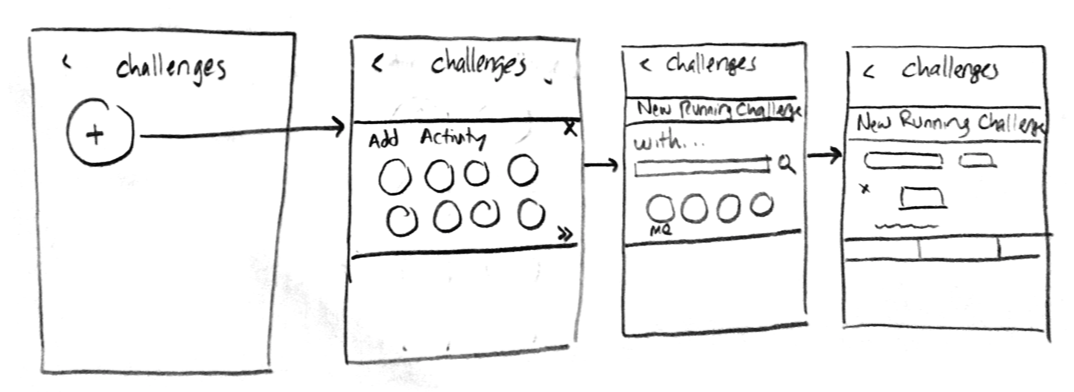 < challenges
+
< challenges
Add Activity x
>>
< challenges
New Running Challenge
with...
MQ
< challenges
New Running Challenge
x